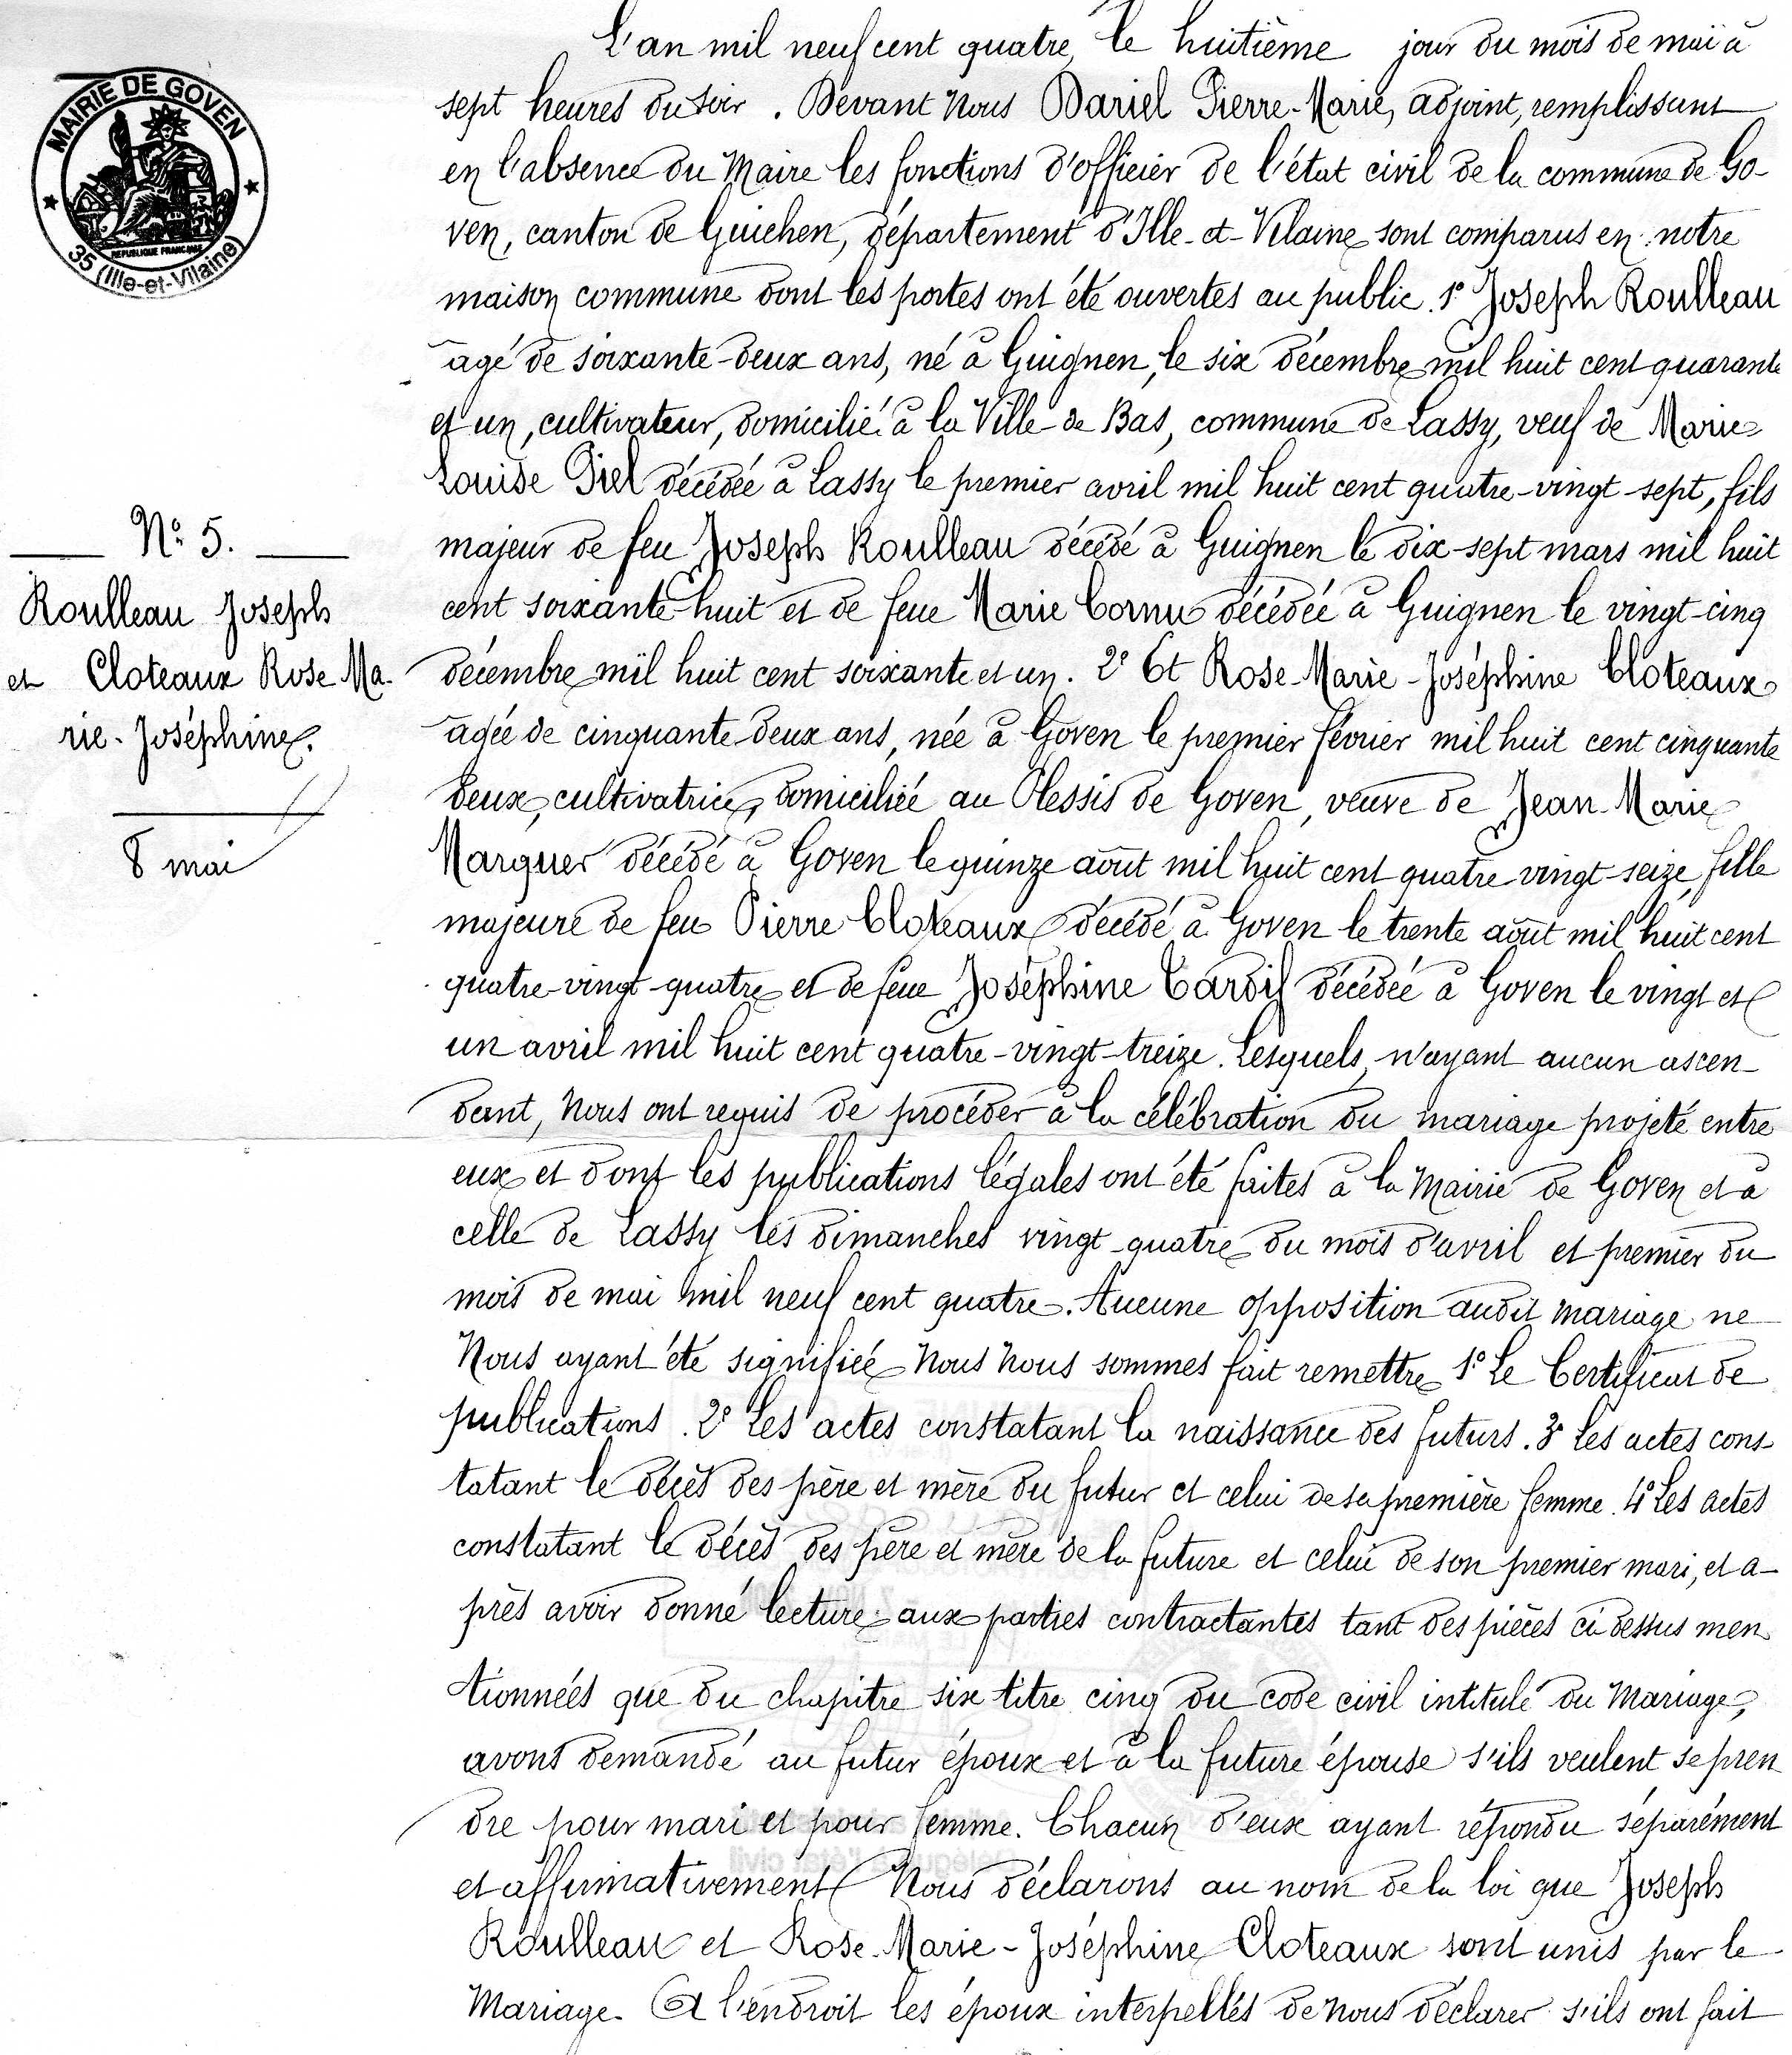 MAIRIE DE GOVEN
REPUBLIQUE FRANCAISE
35 (Ille-et-Vilaine)
N° 5.
Roulleau Joseph
et Cloteaux Rose Ma-
rie-Joséphine.
8 mai
L'an mil neuf cent quatre, le huitième jour du mois de mai à
sept heures du soir. Devant Nous Dariel Pierre-Marie, adjoint, remplissant
en l'absence du Maire les fonctions d'officier de l'état civil de la commune de Go-
ven, canton de Guichen, département d'Ille-et-Vilaine sont comparus en notre
maison commune dont les portes ont été ouvertes au public. 1° Joseph Roulleau
agé de soixante-deux ans, né à Guignen, le six décembre mil huit cent quarante
et un, cultivateur, domicilié à la Ville de Bas, commune de Lassy, veuf de Marie-
Louise Piel décédée à Lassy le premier avril mil huit cent quatre-vingt-sept, fils
majeur de feu Joseph Roulleau décédé à Guignen le dix-sept mars mil huit
cent soixante-huit et de feue Marie Cornu décédée à Guignen le vingt-cinq
décembre mil huit cent soixante et un. 2° Et Rose-Marie-Joséphine Cloteaux
agée de cinquante-deux ans, née à Goven le premier février mil huit cent cinquante
deux, cultivatrice, domiciliée au Plessis de Goven, veuve de Jean-Marie
Marquer décédé à Goven le quinze août mil huit cent quatre-vingt-seize, fille
majeure de feu Pierre Cloteaux décédé à Goven le trente août mil huit cent
quatre-vingt-quatre et de feue Joséphine Tardif décédée à Goven le vingt et
un avril mil huit cent quatre-vingt-treize. Lesquels, n'ayant aucun ascen-
dant, Nous ont requis de procéder à la célébration du mariage projeté entre
eux et dont les publications légales ont été faites à la Mairie de Goven et à
celle de Lassy les dimanches vingt-quatre du mois d'avril et premier du
mois de mai mil neuf cent quatre. Aucune opposition audit mariage ne
Nous ayant été signifiée Nous Nous sommes fait remettre 1° Le Certificat de
publications. 2° Les actes constatant la naissance des futurs. 3° Les actes cons-
tatant le décès des père et mère du futur et celui de sa première femme. 4° Les actes
constatant le décès des père et mère de la future et celui de son premier mari, et a-
près avoir donné lecture aux parties contractantes tant des pièces ci-dessus men
tionnées que du chapitre six titre cinq du code civil intitulé du Mariage,
avons demandé au futur époux et à la future épouse s'ils veulent se pren
dre pour mari et pour femme. Chacun d'eux ayant répondu séparément
et affirmativement Nous déclarons au nom de la loi que Joseph
Roulleau et Rose-Marie-Joséphine Cloteaux sont unis par le
Mariage. A l'endroit les époux interpellés de Nous déclarer s'ils ont fait